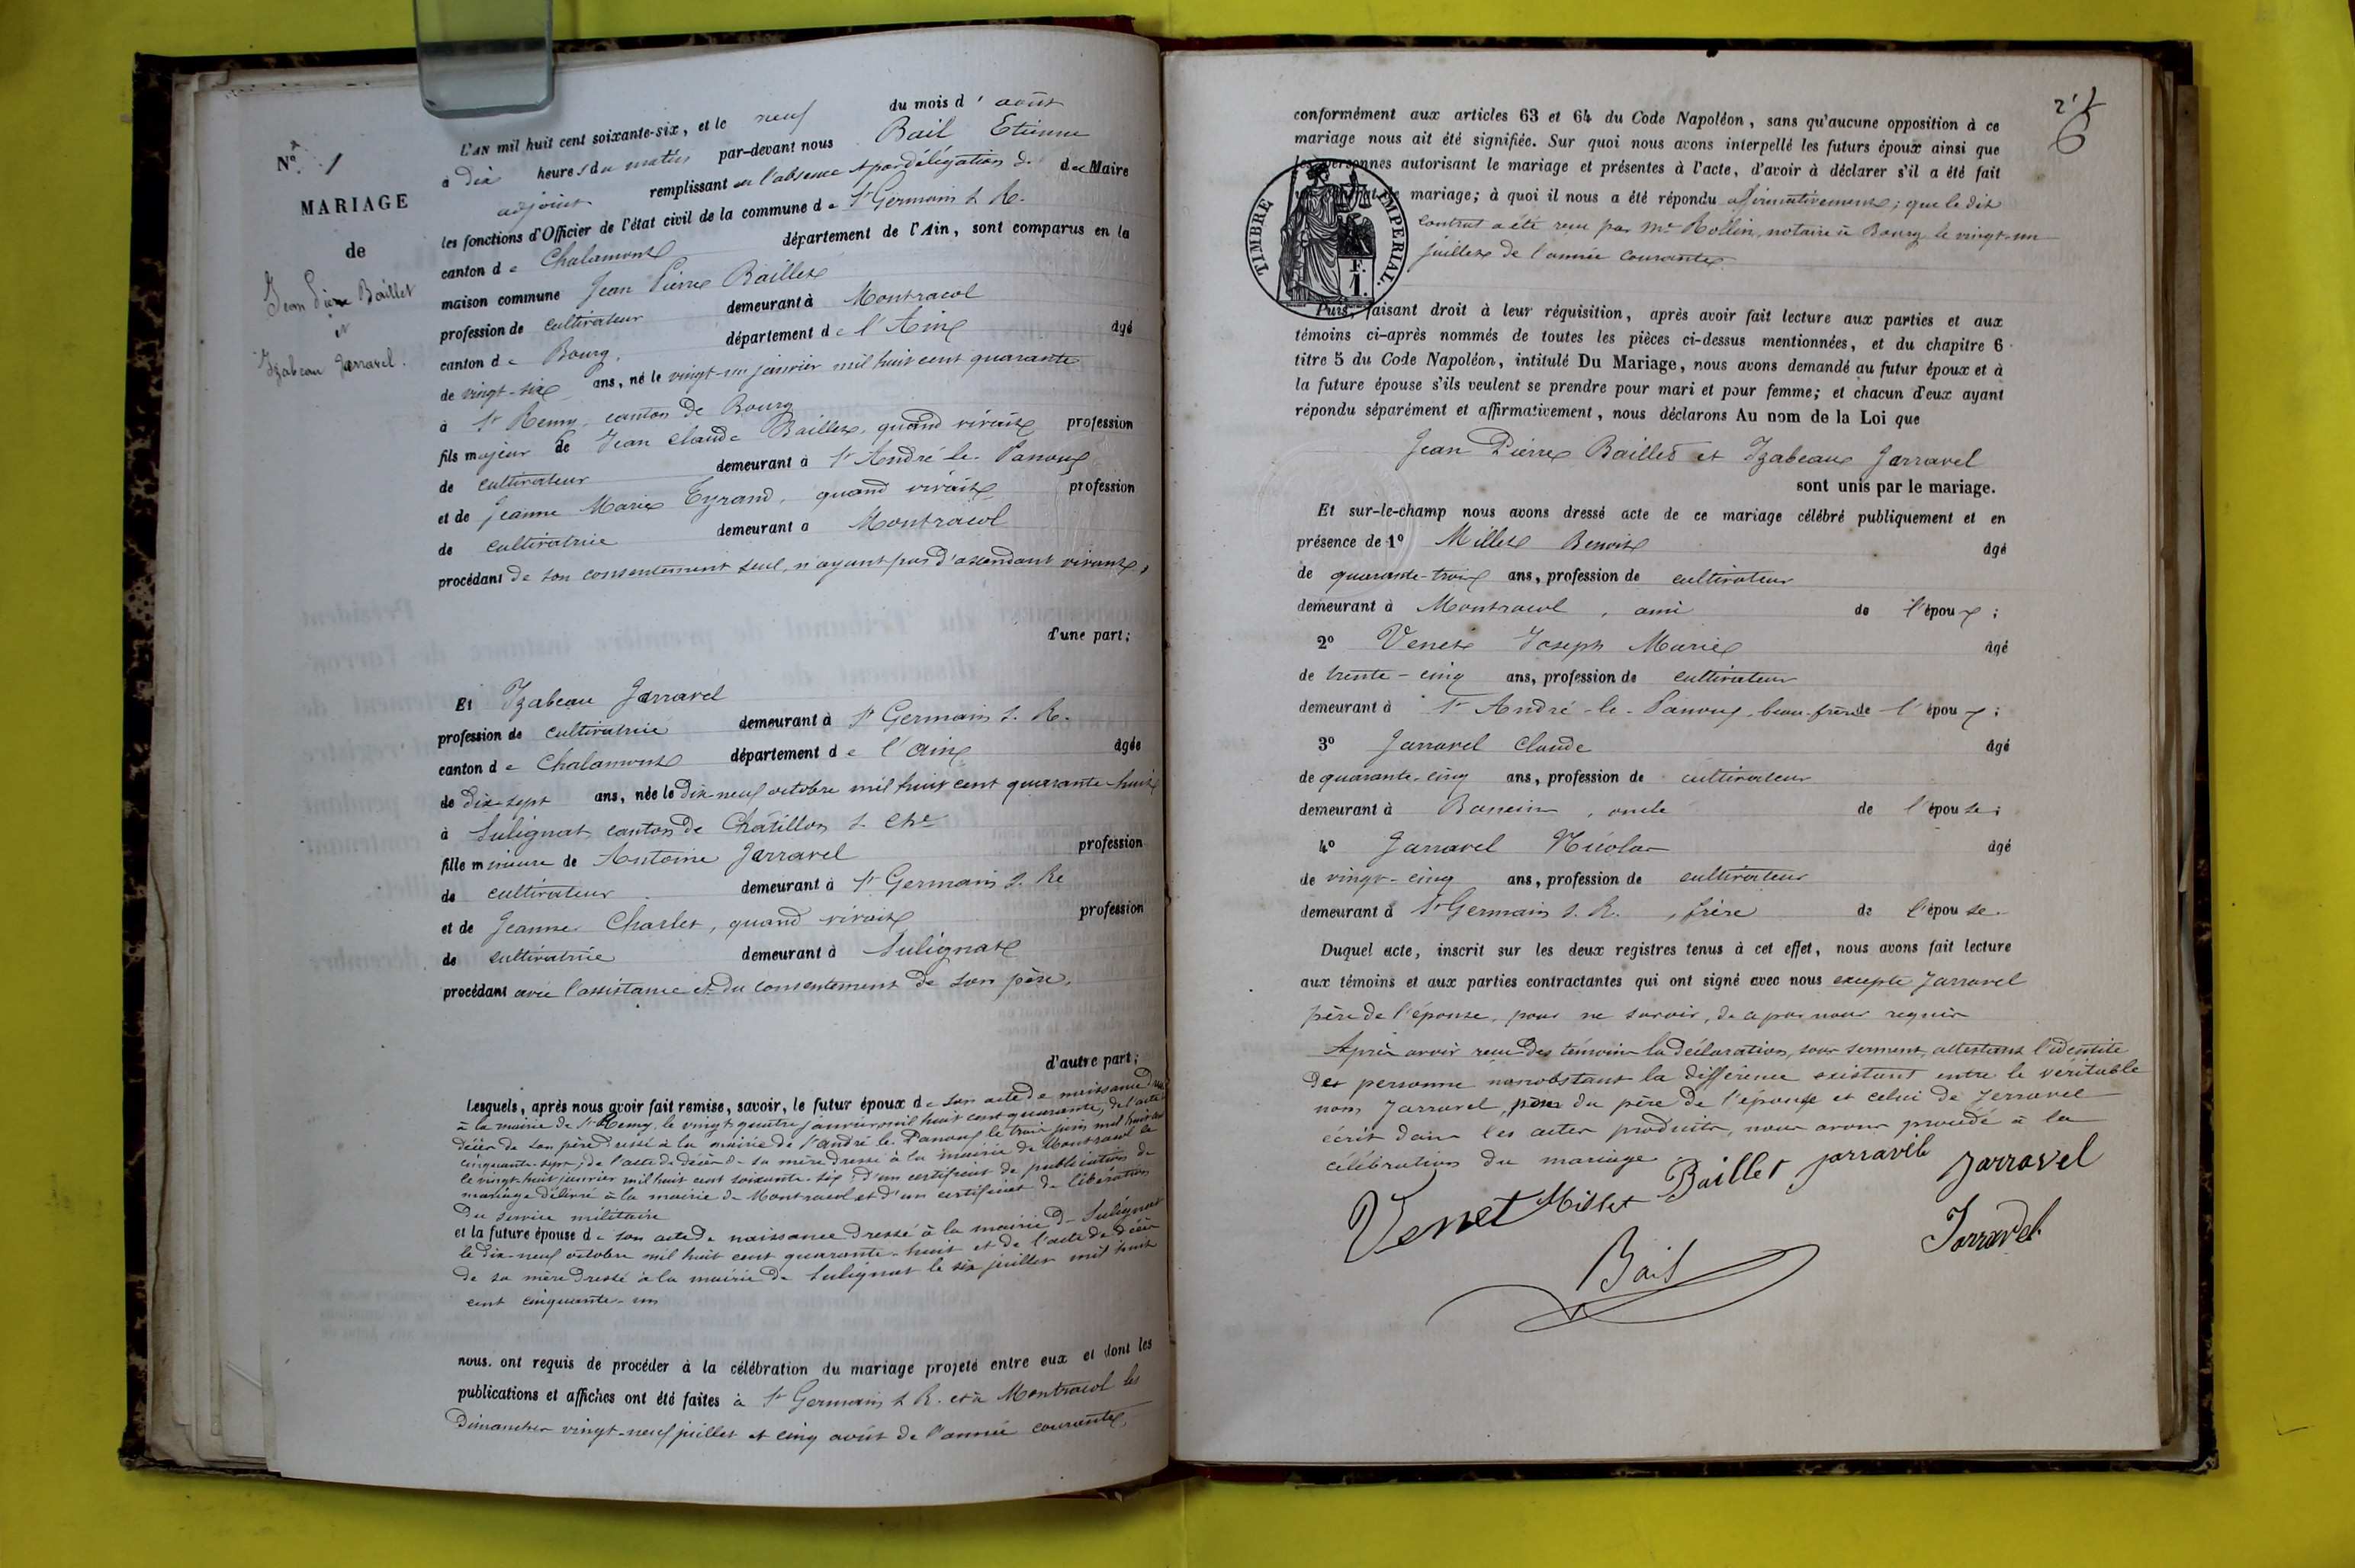 N° 1
MARIAGE
de
Jean Pierre Baillet
et
Izabeau Jarravel.
L'AN mil huit cent soixante-six, et le neuf du mois d'août
à dix heures du matin par-devant nous Bail Etienne
adjoint remplissant en l'absence et par délégation du Maire
les fonctions d'Officier de l'état civil de la commune de St Germain s. Re.
canton de Chalamont département de l'Ain, sont comparus en la
maison commune Jean Pierre Baillet
profession de cultivateur demeurant à Montracol
canton de Bourg. département de l'Ain âgé
de vingt-six ans, né le vingt-un janvier mil huit cent quarante
à St Remy, canton de Bourg
fils majeur de Jean Claude Baillet, quand vivait profession
de cultivateur demeurant à St André-le-Panoux
et de Jeanne Marie Tyrand, quand vivait profession
de cultivatrice demeurant à Montracol
procédant de son consentement seul, n'ayant pas d'ascendant vivant,
d'une part;
Et Izabeau Jarravel
profession de cultivatrice demeurant à St Germain s. Re.
canton de Chalamont département de l'Ain âgée
de dix-sept ans, née le dix-neuf octobre mil huit cent quarante-huit
à Sulignat canton de Châtillon s. Che
fille mineure de Antoine Jarravel profession
de cultivateur demeurant à St Germain s. Re
et de Jeanne Charlet, quand vivait profession
de cultivatrice demeurant à Sulignat
procédant avec l'assistance et du consentement de son père.
d'autre part;
Lesquels, après nous avoir fait remise, savoir, le futur époux de son acte de naissance
à la mairie de St Remy, le vingt quatre janvier mil huit cent quarante, de l'acte
décès de son père dressé à la mairie de St André le Panoux le trois juin mil huit cent
cinquante-sept; de l'acte de décès de sa mère dressé à la mairie de Montracol le
le vingt-huit janvier mil huit cent soixante-six; d'un certificat de publication de
mariage délivré à la mairie de Montracol et d'un certificat de libération
du service militaire
et la future épouse de son acte de naissance dressé à la mairie de Sulignat
le dix-neuf octobre mil huit cent quarante-huit et de l'acte de décès
de sa mère dressé à la mairie de Sulignat le six juillet mil huit
cent cinquante-un
nous ont requis de procéder à la célébration du mariage projeté entre eux et dont les
publications et affiches ont été faites à St Germain s R. et à Montracol les
dimanches vingt-neuf juillet et cinq août de l'année courante
conformément aux articles 63 et 64 du Code Napoléon, sans qu'aucune opposition à ce
mariage nous ait été signifiée. Sur quoi nous avons interpellé les futurs époux ainsi que
les personnes autorisant le mariage et présentes à l'acte, d'avoir à déclarer s'il a été fait
mariage; à quoi il nous a été répondu affirmativement; que le dit
contrat a été reçu par Me Rollin, notaire à Bourg le vingt-un
juillet de l'année courante.
TIMBRE IMPERIAL.
F.
1.
Puis, faisant droit à leur réquisition, après avoir fait lecture aux parties et aux
témoins ci-après nommés de toutes les pièces ci-dessus mentionnées, et du chapitre 6
titre 5 du Code Napoléon, intitulé Du Mariage, nous avons demandé au futur époux et à
la future épouse s'ils veulent se prendre pour mari et pour femme; et chacun d'eux ayant
répondu séparément et affirmativement, nous déclarons Au nom de la Loi que
Jean Pierre Baillet et Izabeau Jarravel
sont unis par le mariage.
Et sur-le-champ nous avons dressé acte de ce mariage célébré publiquement et en
présence de 1° Millet Benoit âgé
de quarante-trois ans, profession de cultivateur
demeurant à Montracol, ami de l'époux;
2° Venet Joseph Marie âgé
de trente-cinq ans, profession de cultivateur
demeurant à St André-le-Panoux, beau-frère de l'époux;
3° Jarravel Claude âgé
de quarante-cinq ans, profession de cultivateur
demeurant à Baneins, oncle de l'épouse;
4° Jarravel Nicolas âgé
de vingt-cinq ans, profession de cultivateur
demeurant à St Germain s. R., frère de l'épouse.
Duquel acte, inscrit sur les deux registres tenus à cet effet, nous avons fait lecture
aux témoins et aux parties contractantes qui ont signé avec nous excepté Jarravel
père de l'épouse, pour ne savoir, de ce par nous requis
Après avoir reçu des témoins la déclaration, sous serment, attestant l'identité
des personne nonobstant la différence existant entre le véritable
nom Jarravel, du père de l'épouse et celui de Jerravel
écrit dans les actes produits, nous avons procédé à la
célébration du mariage
Venet Millet Baillet jarravel Jarravel
Jarravel
Bail